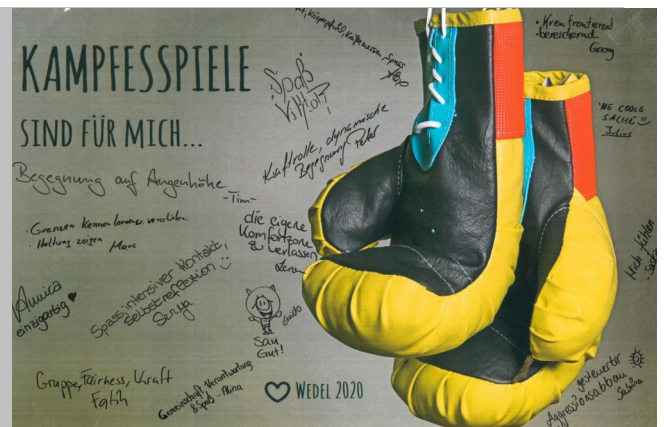 KAMPFESSPIELE
SIND FÜR MICH...
Spaß
Kraftvolle, dynamische
Begegnung Peter
Begegnung auf Augenhöhe
-Tim-
· Grenzen kennenlernen
· Haltung zeigen Marc
die eigene
Komfortzone
zu verlassen
Lena
Annica
einzigartig ♥
Spass, intensiver Kontakt,
Selbstreflexion ☺
Senja
Guido
Sau
Gut!
Gruppe, Fairness, Kraft
Fatih
Gemeinschaft, Verantwortung
& Spaß - Alina
♡ WEDEL 2020
· Konfrontierend
· bereichernd
Georg
'NE COOLE
SACHE ☺
Julius
Mich fühlen
gesteuerter
Aggressionsabbau
Sabina